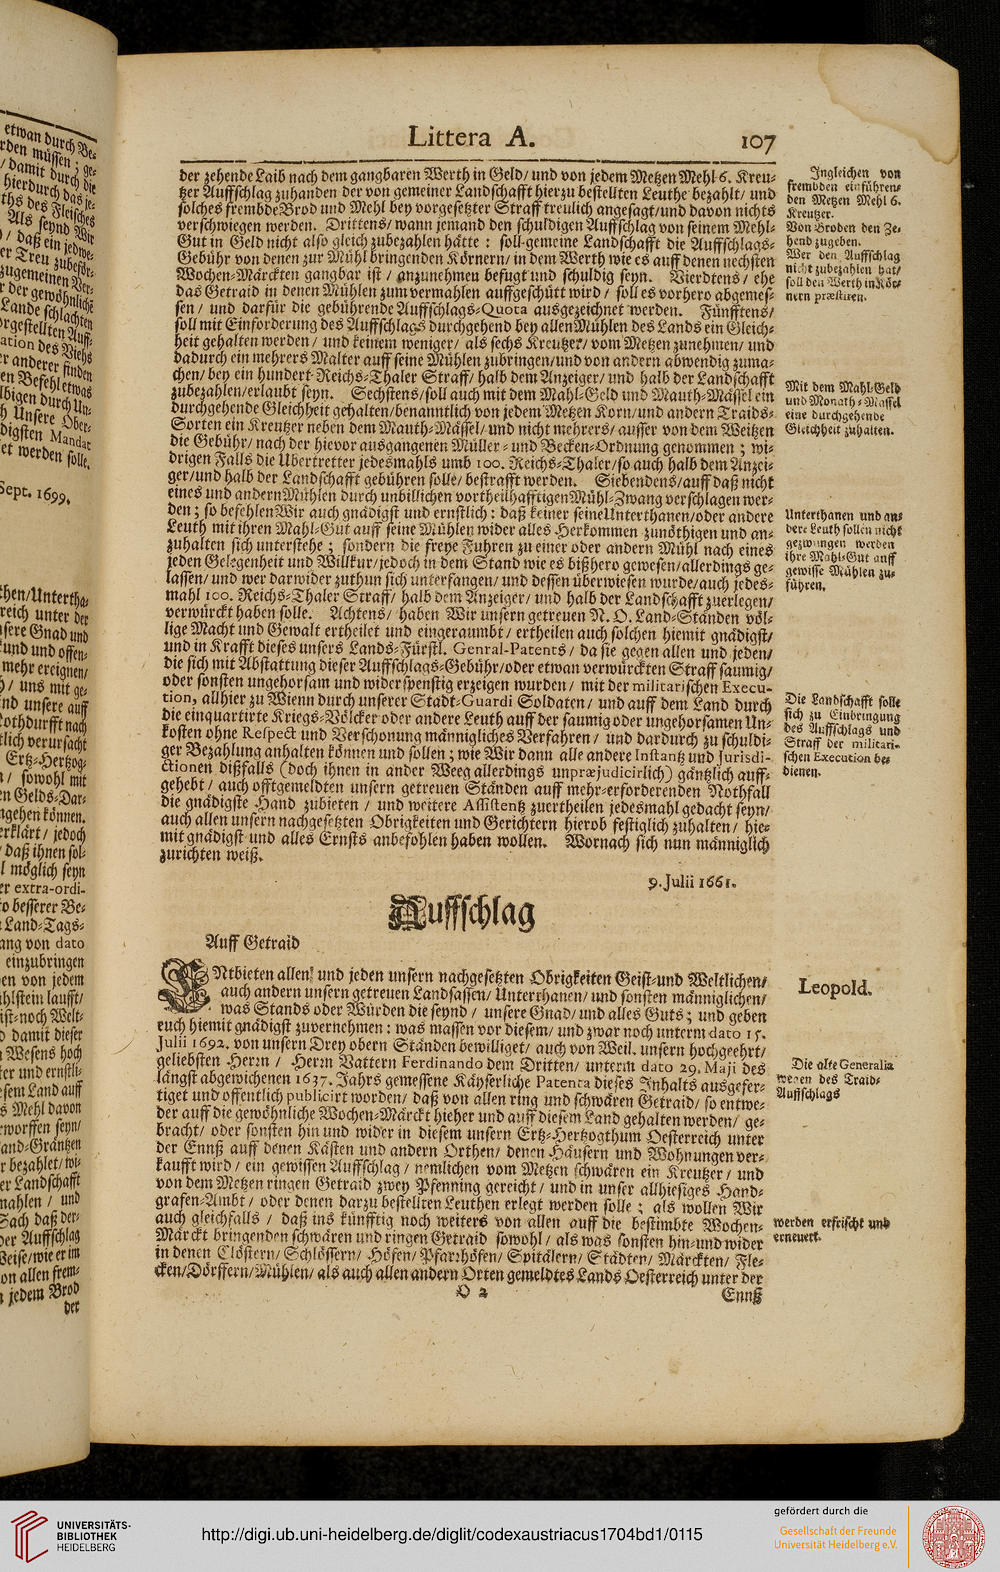 etwan durch Be-
rden müssen; ge-
/ damit durch die
hierdurch das je-
ths des Fleisches
Als seynd Wir
/ daß ein jedwe-
er Treu zubeför-
zugemeinen Ver-
r der gewöhnliche
Lande schlachten
orgestellten Auff-
ation des Viehs
er anderer finden
en Befehl etwas
lbigen durch Un-
h Unsere Ober-
digsten Mandat
et werden solle.
Sept. 1699.
then/Untertha-
reich unter der
sere Gnad und
kund und offen-
mehr ereignen/
h/ uns mit ge-
nd unsere auff
othdurfft nach
tlich verursacht
Ertz-Hertzog-
n/ sowohl mit
en Gelds-Dar-
ngehen können.
erklärt/ jedoch
daß ihnen sol-
l möglich seyn
er extra-ordi-
o besserer Be-
Land-Tags-
ang von dato
einzubringen
en von jedem
ühlstein laufft/
ist-noch Welt-
damit dieser
Wesens hoch
ter und ernstli-
esem Land auff
s Mehl davon
rworffen seyn/
and-Gräntzen
r bezahlet/wi-
er Landschafft
mahlen / und
Sach daß der-
der Auffschlag
Weise/wie er im
on allen frem-
jedem Brod
der
Littera A. 107
der zehende Laib nach dem gangbaren Werth in Geld/ und von jedem Metzen Mehl 6. Kreu-
tzer Auffschlag zuhanden der von gemeiner Landschafft hierzu bestellten Leuthe bezahlt/ und
solches frembde Brod und Mehl bey vorgesetzter Straff treulich angesagt/und davon nichts
verschwiegen werden. Drittens/ wann jemand den schuldigen Auffschlag von seinem Mehl-
Gut in Geld nicht also gleich zubezahlen hätte : soll-gemeine Landschafft die Auffschlags-
Gebühr von denen zur Mühl bringenden Körnern/ in dem Werth wie es auff denen nechsten
Wochen-Märckten gangbar ist / anzunehmen befugt und schuldig seyn. Vierdtens/ ehe
das Getraid in denen Mühlen zum vermahlen auffgeschütt wird / soll es vorhero abgemes-
sen / und darfür die gebührende Auffschlags-Quota ausgezeichnet werden. Fünfftens/
soll mit Einforderung des Auffschlags durchgehend bey allen Mühlen des Lands ein Gleich-
heit gehalten werden / und keinem weniger/ als sechs Kreutzer/ vom Metzen zunehmen/ und
dadurch ein mehrers Malter auff seine Mühlen zubringen/und von andern abwendig zuma-
chen/ bey ein hundert Reichs-Thaler Straff/ halb dem Anzeiger/ und halb der Landschafft
zubezahlen/erlaubt seyn. Sechstens/soll auch mit dem Mahl-Geld und Mauth-Mässel ein
durchgehende Gleichheit gehalten/benanntlich von jedem Metzen Korn/und andern Traids-
Sorten ein Kreutzer neben dem Mauth-Mässel/und nicht mehrers/ ausser von dem Weitzen
die Gebühr/ nach der hievor ausgangenen Müller- und Becken-Ordnung genommen ; wi-
drigen Falls die Ubertretter jedesmahls umb 100. Reichs-Thaler/so auch halb dem Anzei-
ger/und halb der Landschafft gebühren solle/ bestrafft werden. Siebendens/auff daß nicht
eines und andern Mühlen durch unbillichen vortheilhafftigen Mühl-Zwang verschlagen wer-
den ; so befehlen Wir auch gnädigst und ernstlich : daß keiner seine Unterthanen/oder andere
Leuth mit ihren Mahl-Gut auff seine Mühlen wider alles Herkommen zunöthigen und an-
zuhalten sich unterstehe ; sondern die freye Fuhren zu einer oder andern Mühl nach eines
jeden Gelegenheit und Willkur/jedoch in dem Stand wie es bißhero gewesen/allerdings ge-
lassen/ und wer darwider zuthun sich unterfangen/ und dessen überwiesen wurde/auch jedes-
mahl 100. Reichs-Thaler Straff/ halb dem Anzeiger/ und halb der Landschafft zuerlegen/
verwürckt haben solle. Achtens/ haben Wir unsern getreuen N. O. Land-Ständen völ-
lige Macht und Gewalt ertheilet und eingeraumbt / ertheilen auch solchen hiemit gnädigst/
und in Krafft dieses unsers Lands-Fürstl. Genral-Patents/ da sie gegen allen und jeden/
die sich mit Abstattung dieser Auffschlags-Gebühr/oder etwan verwürckten Straff saumig/
oder sonsten ungehorsam und widerspenstig erzeigen wurden/ mit der militarischen Execu-
tion, allhier zu Wienn durch unserer Stadt-Guardi Soldaten/ und auff dem Land durch
die einquartirte Kriegs-Völcker oder andere Leuth auff der saumig oder ungehorsamen Un-
kosten ohne Respect und Verschonung männigliches Verfahren/ und dardurch zu schuldi-
ger Bezahlung anhalten können und sollen ; wie Wir dann alle andere Instantz und Jurisdi-
ctionen dißfalls (doch ihnen in ander Weeg allerdings unpræjudicirlich) gäntzlich auff-
gehebt/ auch offtgemeldten unsern getreuen Ständen auff mehr-erforderenden Nothfall
die gnädigste Hand zubieten / und weitere Assistentz zuertheilen jedesmahl gedacht seyn/
auch allen unsern nachgesetzten Obrigkeiten und Gerichtern hierob festiglich zuhalten/ hie-
mit gnädigst und alles Ernsts anbefohlen haben wollen. Wornach sich nun männiglich
zurichten weiß.
9. Julii 1661.
Auffschlag
Auff Getraid
ENtbieten allen/ und jeden unsern nachgesetzten Obrigkeiten Geist-und Weltlichen/
auch andern unsern getreuen Landsassen/ Unterthanen/ und sonsten männiglichen/
was Stands oder Würden die seynd / unsere Gnad/ und alles Guts ; und geben
euch hiemit gnädigst zuvernehmen : was massen vor diesem/ und zwar noch unterm dato 15.
Julii 1692. von unsern Drey obern Ständen bewilliget/ auch von Weil. unsern hochgeehrt/
geliebsten Herrn / Herrn Vattern Ferdinando dem Dritten/ unterm dato 29. Maji des
längst abgewichenen 1637. Jahrs gemessene Käyserliche Patenta dieses Inhalts ausgefer-
tiget und offentlich publicirt worden/ daß von allen ring und schwären Getraid/ so entwe-
der auff die gewöhnliche Wochen-Märckt hieher und auff diesem Land gehalten werden/ ge-
bracht/ oder sonsten hin und wider in diesem unsern Ertz-Hertzogthum Oesterreich unter
der Ennß auff denen Kästen und andern Orthen/ denen Häusern und Wohnungen ver-
kaufft wird / ein gewissen Auffschlag / nemlichen vom Metzen schwären ein Kreutzer / und
von dem Metzen ringen Getraid zwey Pfenning gereicht / und in unser allhiesiges Hand-
grafen-Ambt / oder denen darzu bestellten Leuthen erlegt werden solle ; als wollen Wir
auch gleichfalls / daß ins künfftig noch weiters von allen auff die bestimbte Wochen-
Märckt bringenden schwären und ringen Getraid sowohl / als was sonsten hin-und wider
in denen Clöstern/ Schlössern/ Höfen/ Pfarrhöfen/ Spitälern/ Städten/ Märckten/ Fle-
cken/Dörffern/Mühlen/ als auch allen andern Orten gemeldtes Lands Oesterreich unter der
O 2 Ennß
Ingleichen von
frembden einführen-
den Metzen Mehl 6.
Kreutzer.
Von Broden den Ze-
hend zugeben.
Wer den Auffschlag
nicht zubezahlen hat/
soll den Werth in Kör-
nern præstiren.
Mit dem Mahl-Geld
und Monath-Massel
eine durchgehende
Gleichheit zuhalten.
Unterthanen und an-
dere Leuth sollen nicht
gezwungen werden
ihre Mahl-Gut auff
gewisse Mühlen zu-
führen.
Die Landschafft solle
sich zu Einbringung
des Auffschlags und
Straff der militari-
schen Execution be-
dienen.
Leopold.
Die alte Generalia
wegen des Traid-
Auffschlags
werden erfrischt und
erneuert.
UNIVERSITÄTS-
BIBLIOTHEK
HEIDELBERG
http://digi.ub.uni-heidelberg.de/diglit/codexaustriacus1704bd1/0115
gefördert durch die
Gesellschaft der Freunde
Universität Heidelberg e.V.